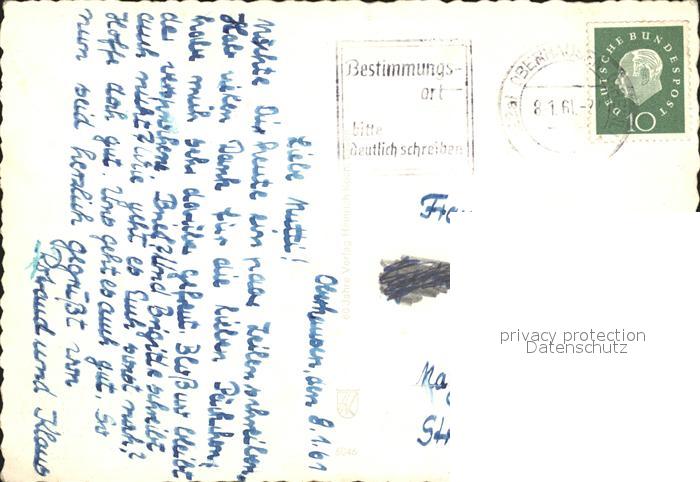 Oberhausen, den 8.1.61
Liebe Mutti!
Möchte Dir heute ein paar Zeilen schreiben.
Hab vielen Dank für die lieben Päckchen,
habe mich sehr darüber gefreut. Bloß wo bleibt
der versprochene Brief? Und Brigitte schreibt
auch nicht? Wie geht es Euch sonst noch?
Hoffe doch gut. Uns geht es auch gut. So
nun seid herzlich gegrüßt von
und Klaus
Bestimmungs-
ort
bitte
deutlich schreiben
OBERHAUSEN
8.1.61.-
DEUTSCHE BUNDESPOST
10
60 Jahre Verlag
6046
privacy protection
Datenschutz